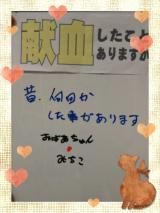 献血したこと
ありますか
昔、何回か
した事があります
おばあちゃん
みちこ